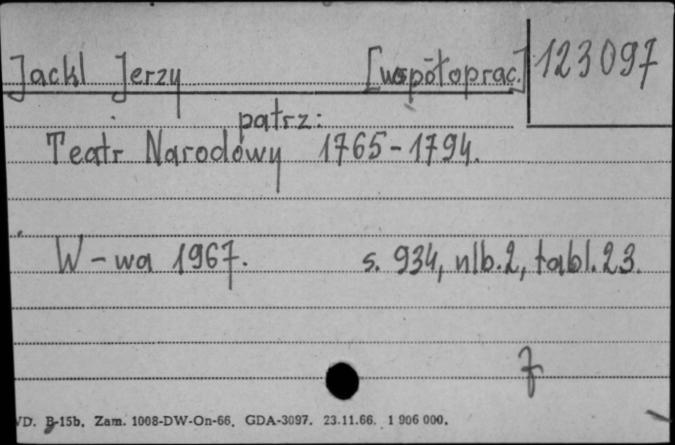 Jackl Jerzy [współoprac.] 123097
patrz:
Teatr Narodowy 1765-1794.
W-wa 1967. s. 934, nlb. 2, tabl. 23.
7
D. B-15b. Zam. 1008-DW-On-66. GDA-3097. 23.11.66. 1 906 000.